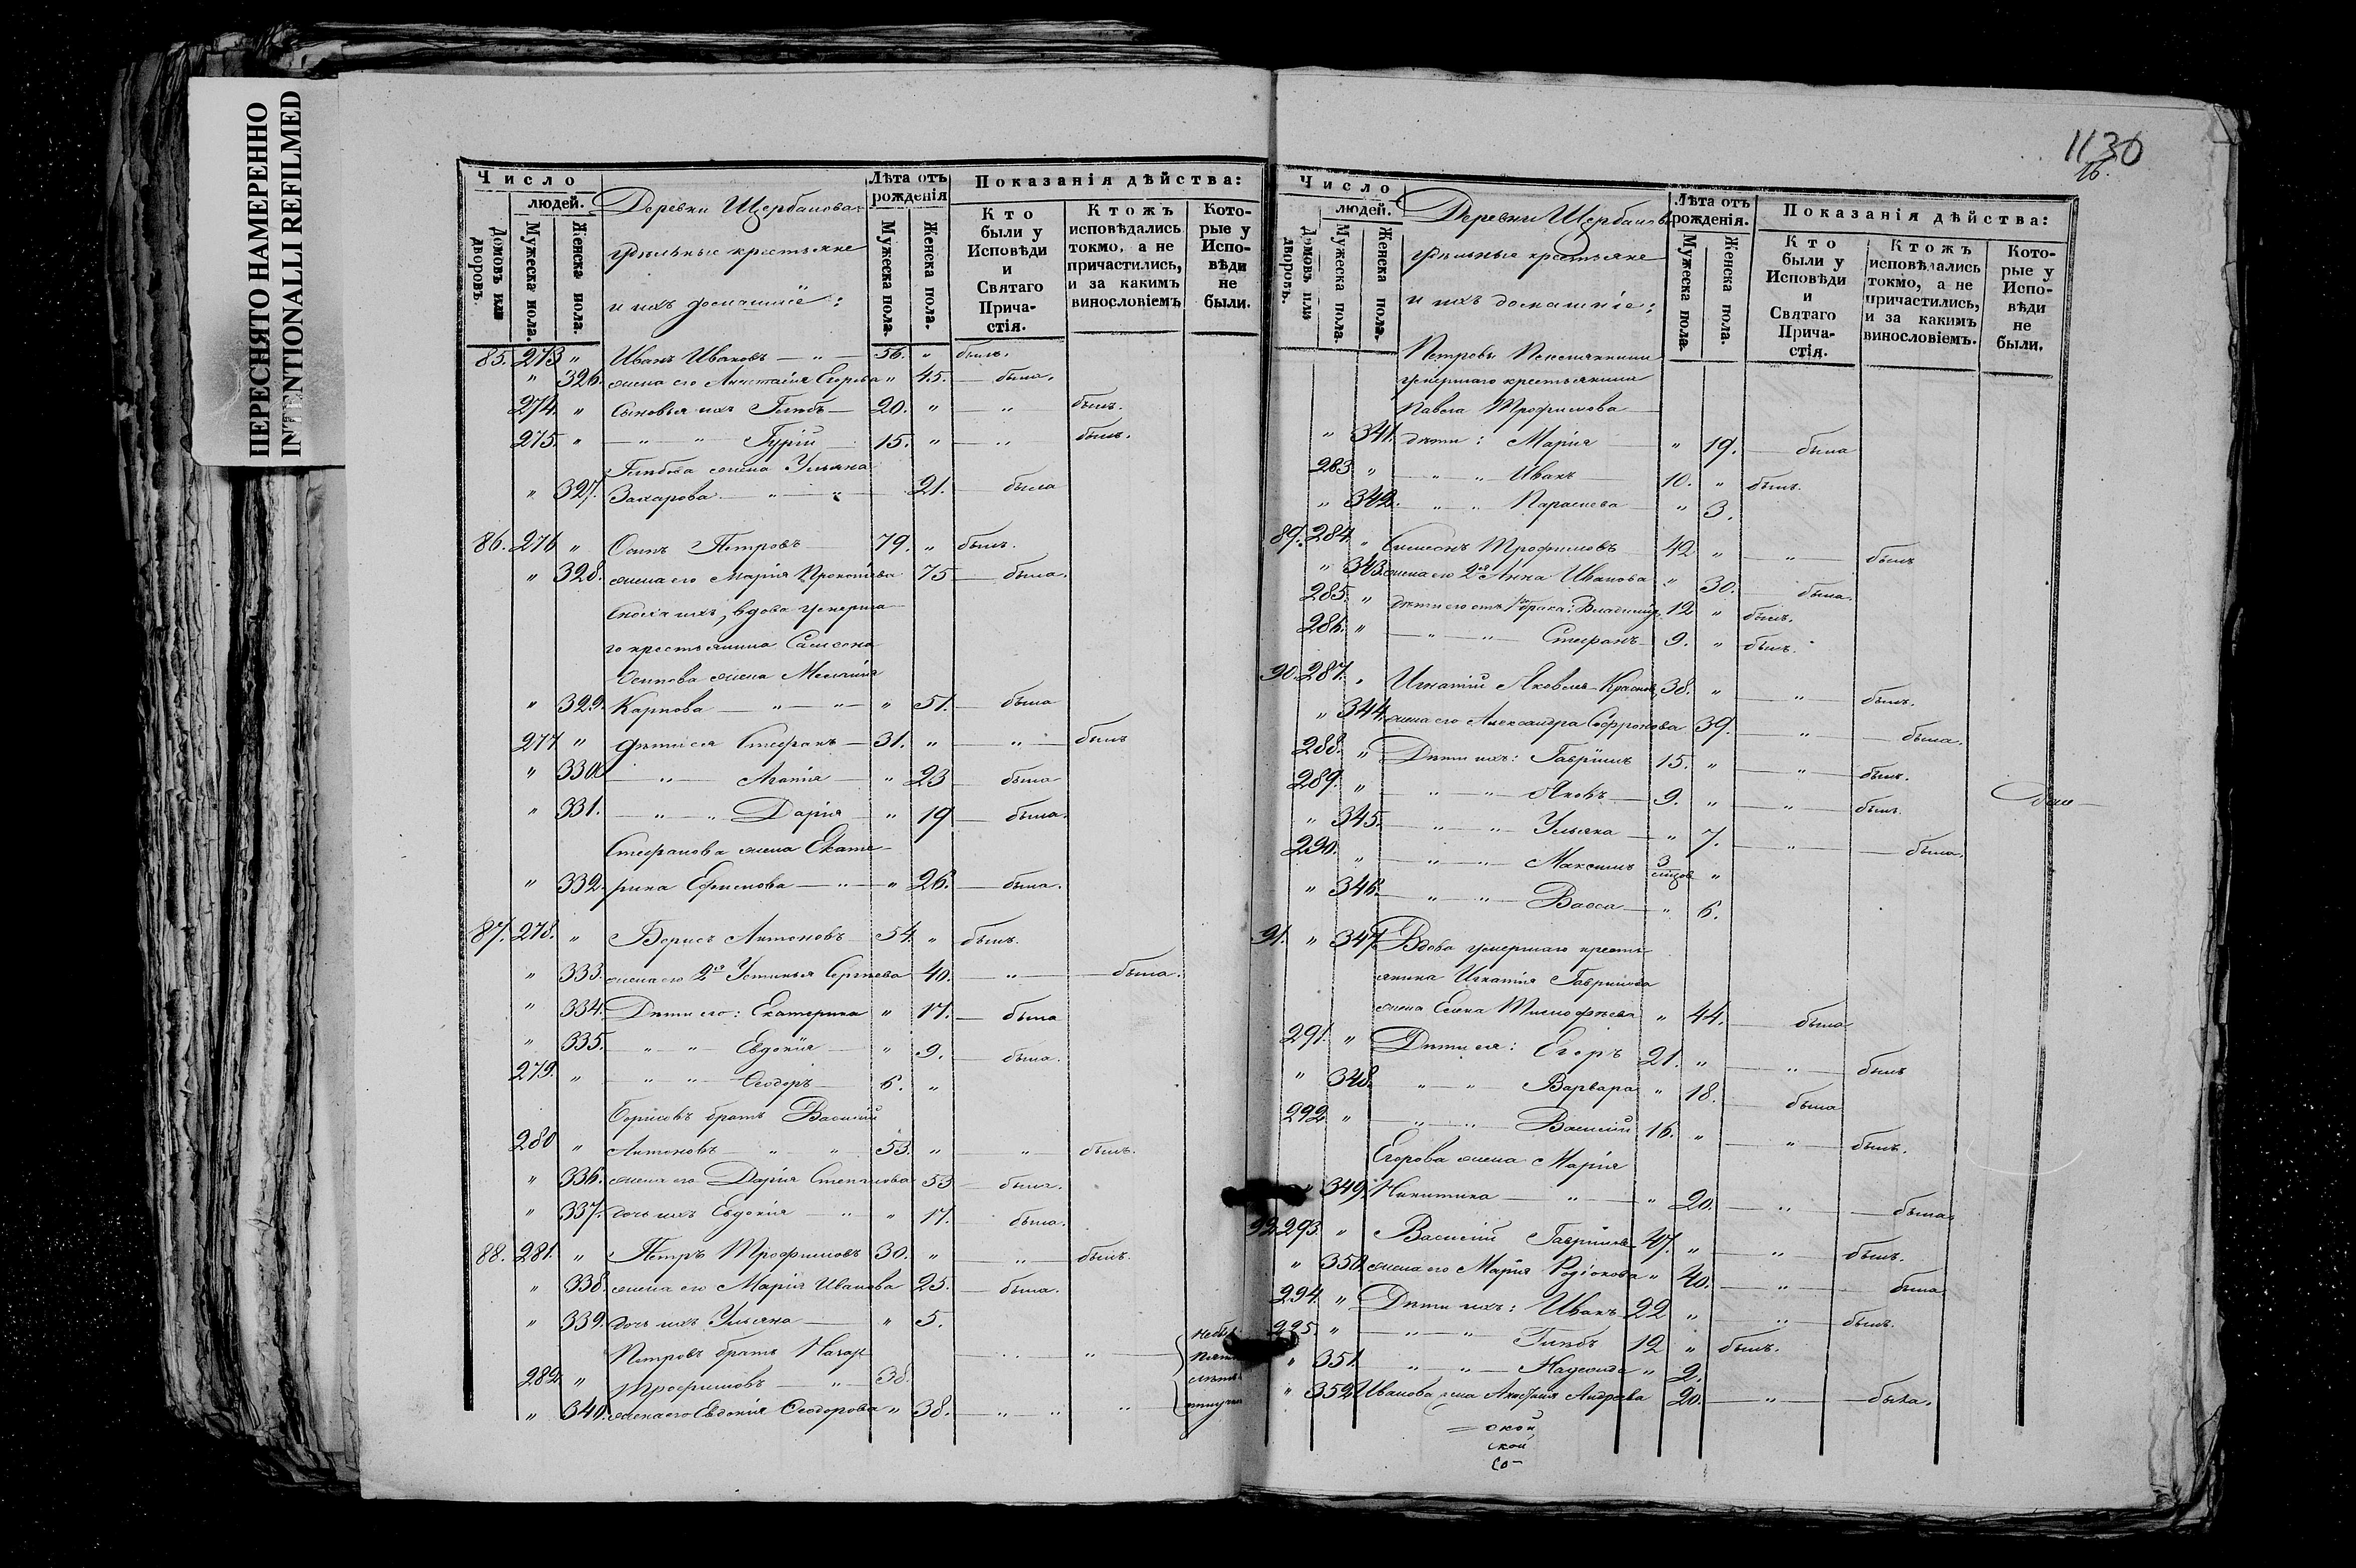 ПЕРЕСНЯТО НАМЕРЕННО
INTENTIONALLI REFILMED
Число
людей.
Домовъ или дворовъ.
Мужеска пола.
Женска пола.
Деревни Щербакова
удѣльные крестьяне
и ихъ домашніе:
Лѣта отъ рожденія
Мужеска пола.
Женска пола.
Показанія дѣйства:
Кто были у Исповѣди и Святаго Причастія.
Ктожъ исповѣдались токмо, а не причастились, и за какимъ винословіемъ
Которые у Исповѣди не были.
85. 273 " Иванъ Ивановъ — " — 56. " былъ.
" 326. жена его Анастасія Егорова " 45. — была.
274. " Сыновья ихъ Глѣбъ — 20. " — " былъ.
275. " — " " Гурій — 15. " — " былъ.
Глѣбова жена Ульяна
" 327. Захарова — " — " 21. — была
86. 276 " Осипъ Петровъ — 79. " былъ.
" 328. жена его Марія Прокопьева 75 — была.
Сноха ихъ, вдова умерша-
го крестьянина Самсона
Осипова жена Меланія
" 329. Карпова — " — " — " 51. — была
277 " Дѣти ея Стефанъ — 31. " — " — былъ
" 330. — " — Агапія — " 23 — была
" 331. — " — " Дарія — " 19 — была.
Стефанова жена Екате-
" 332. рина Ефимова — " — " 26. — была.
87. 278. " Борисъ Антоновъ 54. " былъ.
" 333. жена его 2я Устинья Сергѣева 40. — " — была.
" 334. Дѣти его: Екатерина " 17. — была
" 335. — " — " Евдокія — " 9. — была.
279. " — " " — Ѳеодоръ — 6. "
Борисовъ братъ Василій
280 " Антоновъ — " — " 53. " — " былъ.
" 336. жена его Дарія Степанова 53 — была.
" 337. дочь ихъ Евдокія — " — " 17. — была.
88. 281. " Петръ Трофимовъ 30. " — " — былъ.
" 338. жена его Марія Иванова 25. — была.
" 339. дочь ихъ Ульяна — " 5.
Петровъ братъ Назаръ
282 " Трофимовъ — " — 38.
" 340. жена его Евдокія Ѳеодорова " 38. — " — " "
1130
16.
Число
людей.
Домовъ или дворовъ.
Мужеска пола.
Женска пола.
Деревни Щербакова
удѣльные крестьяне
и ихъ домашніе:
Лѣта отъ рожденія.
Мужеска пола.
Женска пола.
Показанія дѣйства:
Кто были у Исповѣди и Святаго Причастія.
Ктожъ исповѣдались токмо, а не причастились, и за какимъ винословіемъ.
Которые у Исповѣди не были.
Петровы Племянники
умершаго крестьянина
Павла Трофимова —
" 341. дѣти: Марія — " 19. — была
283 " — " " Иванъ — 10. " былъ.
" 342. — " — " Параскева — " 3.
89. 284. " Симеонъ Трофимовъ 42 " — " — былъ
" 343. жена его 2я Анна Иванова " 30. — была.
285. " дѣти его отъ 1го брака: Владиміръ 12 " былъ.
286. " — " — " Стефанъ 9. " былъ.
90 287. " Игнатій Яковлевъ Красновъ 38. " — " — былъ.
" 344. жена его Александра Софронова 39. — " — была.
288. " Дѣти ихъ: Гавріилъ 15. " — " — былъ.
289. " — " — " Яковъ — 9. " — " — былъ.
" 345. — " — " Ульяна — " 7. — " — была.
290. " — " — " Максимъ 3 мѣсяц. "
" 346. — " — " Васса — " 6.
91. " 347. Вдова умершаго кресть-
янина Игнатія Гаврилова
жена Елена Тимофѣева " 44. — была
291. " Дѣти ея: Егоръ 21. " — " — былъ
" 348. " — " Варвара " 18. — была
292. " — " — " Василій 16. " — " — былъ.
Егорова жена Марія
" 349. Никитина — " — " 20. — " — была.
92 293. " Василій Гавриловъ 47. " — " былъ.
" 350. жена его Марія Родіонова " 40. — " — была.
294. " Дѣти ихъ: Иванъ 22 " — " былъ.
295. " — " — " Глѣбъ 12 " былъ.
" 351. " — " — Надежда " 2.
" 352. Иванова жена Анисія Андреева 20. — " — была.